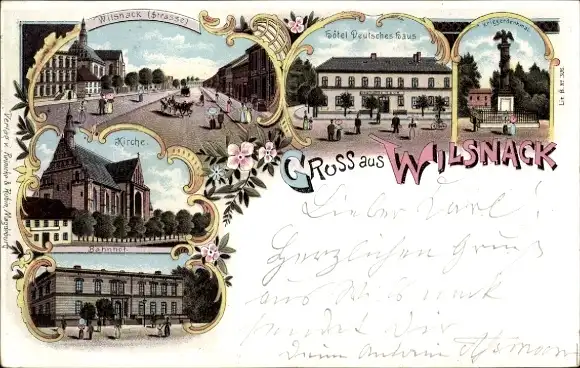 Wilsnack (Strasse)
Hôtel Deutsches Haus
Kriegerdenkmal
Kirche.
Bahnhof.
Gruss aus Wilsnack
Verlag v. Reincke & Rubin, Magdeburg
Lieber Karl!
Herzlichen Gruß
aus Wilsnack
sendet Dir
Deine